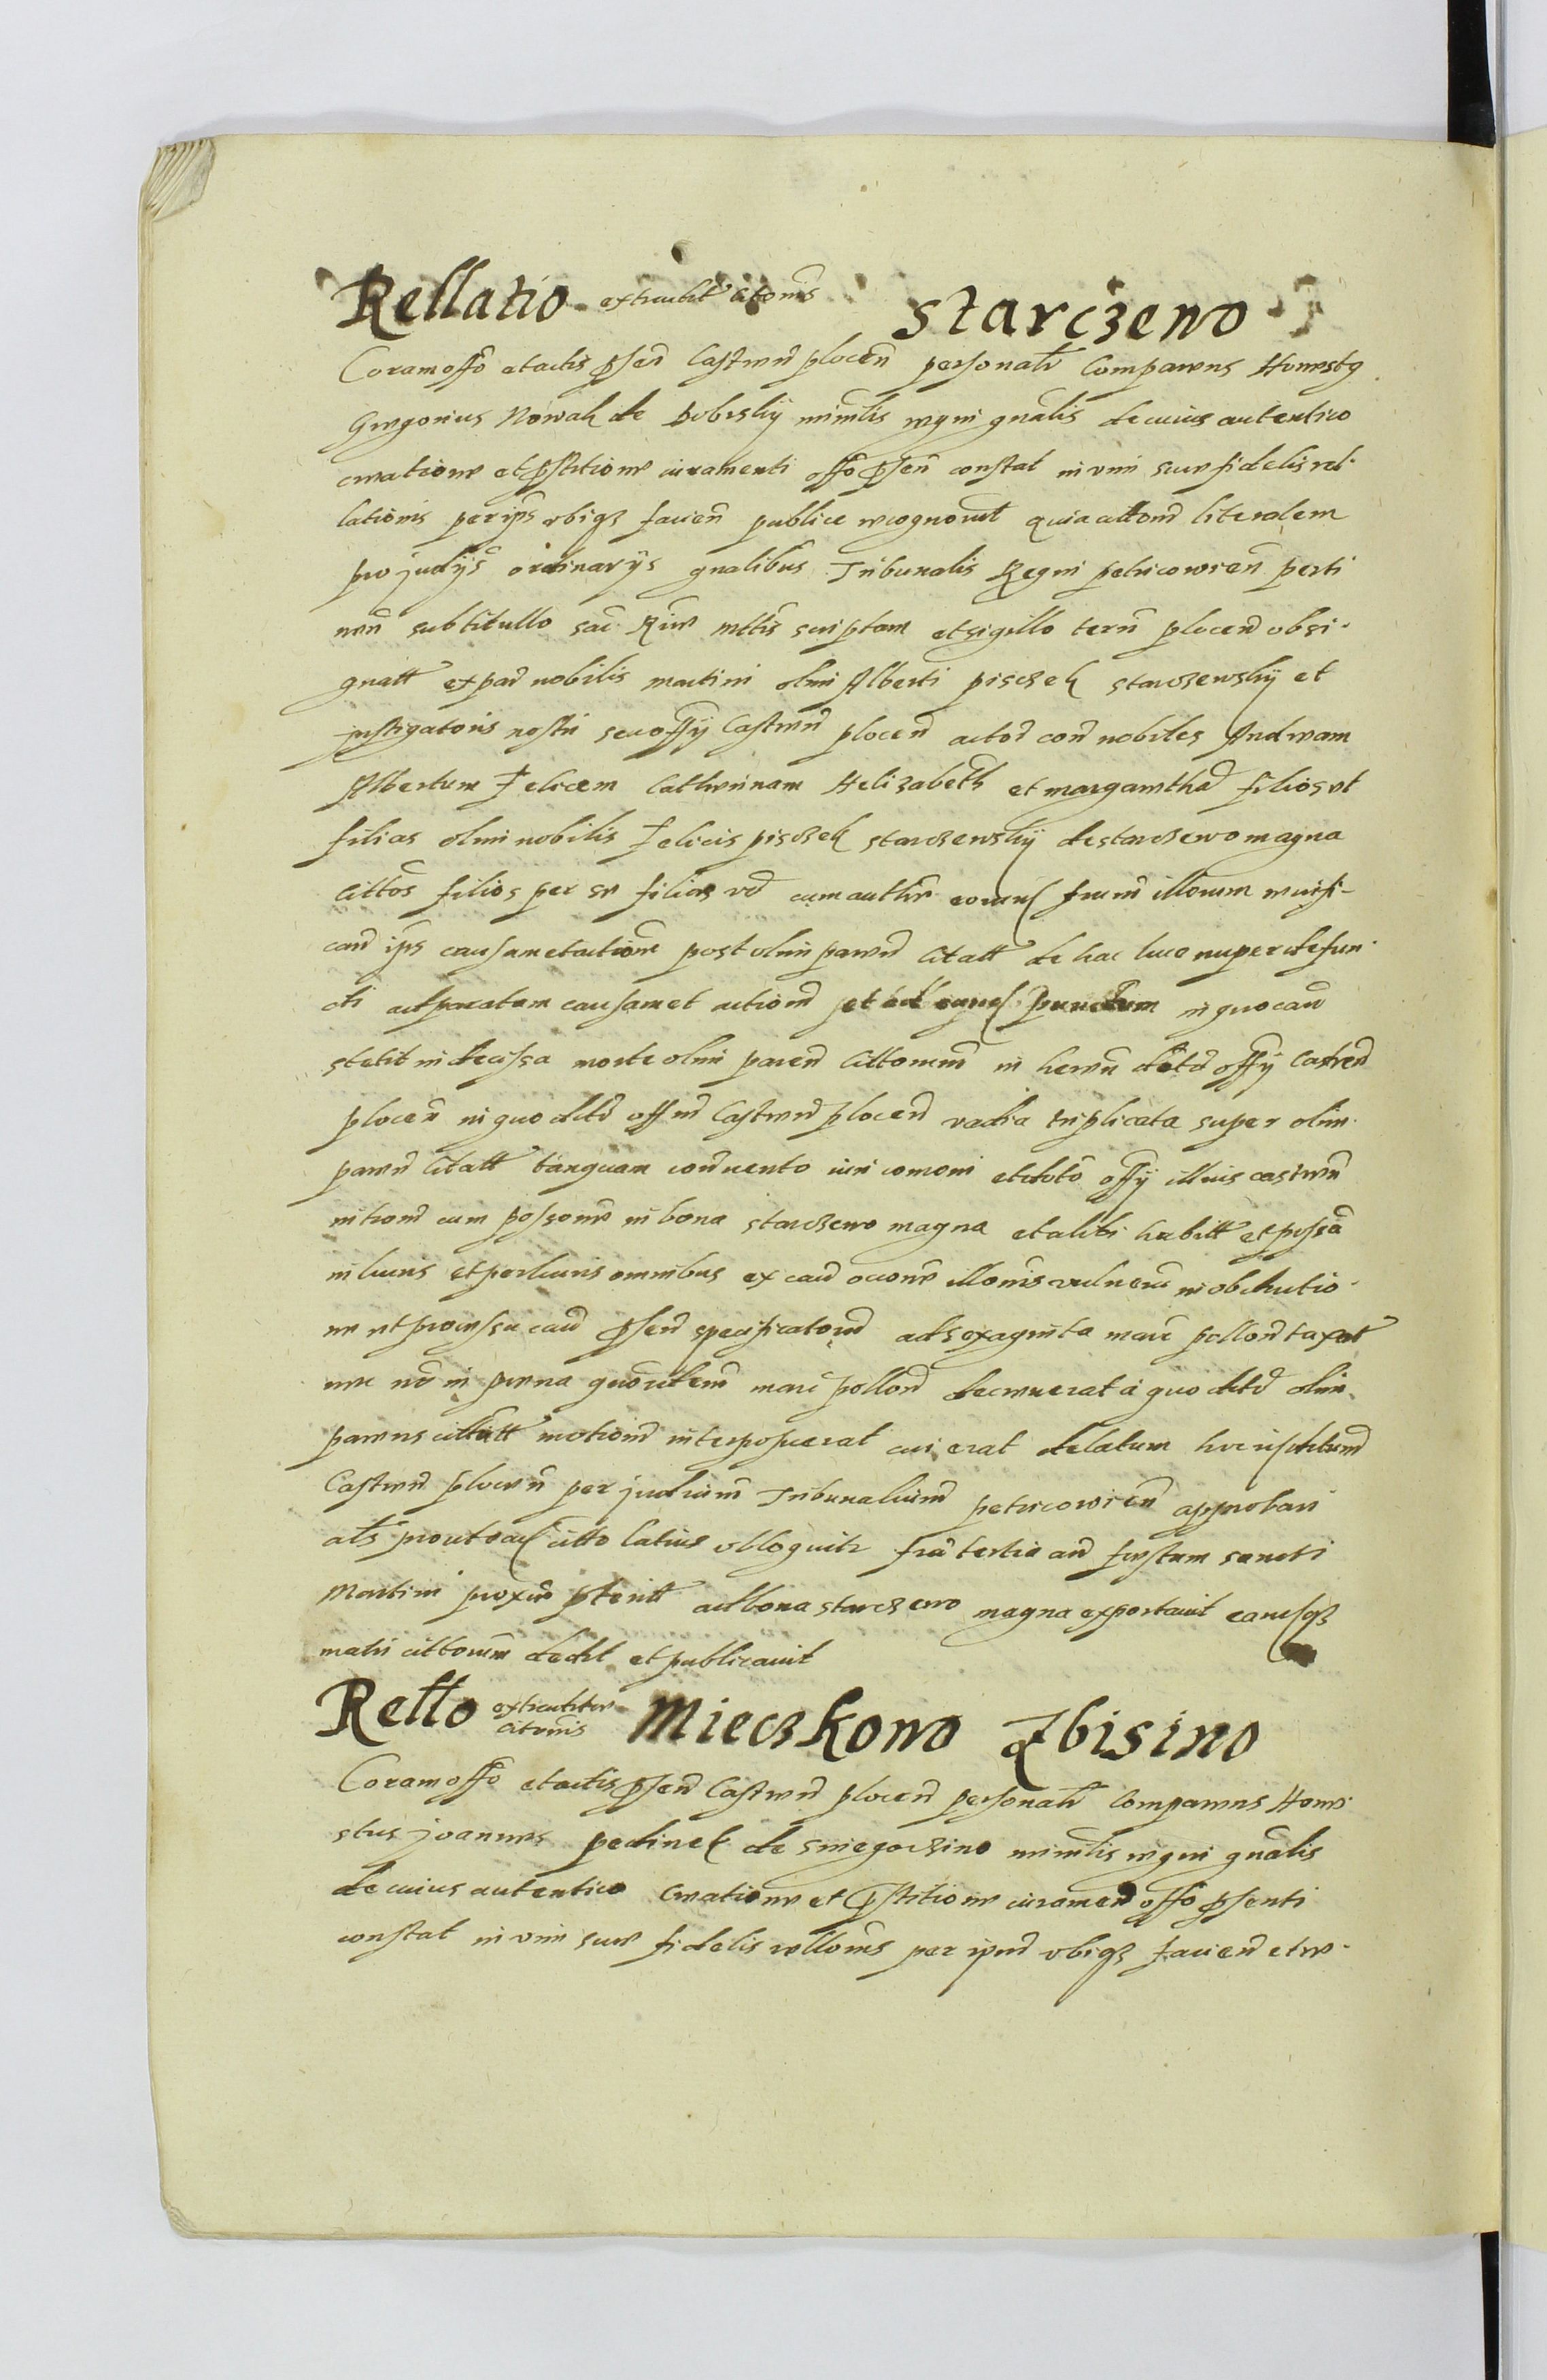 Rellatio extradit citonis Starczewo
Coram offo et actis psen Castren plocen personalr Comparens Honestg
Gregorius Nowak de Bobrskij minrlis regni gnalis de cuius autentico
creatione et pstitione iuramenti offo psen constat in vim sue fidelis rel-
lationis per ips vbiqz facien publice recognouit quia citto[n]em literalem
pro judijs ordinarijs gnalibus Tribunalis Regni petricowien perti
nen sub titullo sac Rie mttis scriptam et sigillo terrn plocen obsi-
gnatt ex par nobilis martini olim Alberti pisczek starczewskij et
jnstigatoris nostri seu offij Castren plocen actor con nobiles Andream
Albertum Felicem Catherinam Helizabeth et margaretha filios et
filias olim nobilis Felicis pisczek starczewskij de starczewo magna
cittos filios per se filias vo cum authre eorund illorum
can ips causam et action post olim paren citatt de hac luce nuper defun-
cti ad paratam causam et actionem et ad eund punctum in quo can
stetit indecissa morte olim paren cittorum in dcto offij Castren
plocen in quo dcto offm Castren plocen vadia triplicata super olim
paren citatt tanquam conuento iuri comoni et dcto offij illius castren
cum possone in bona starczewo magna et alibi habitt et possa
in lucris et perlucris omnibus ex can ocone illonis vulnerum in obductio-
ne et processu can psen specificatorum ad sexaginta marc pollon taxat
nec no in pena quoridem marc pollon decreuerat a quo dcto olim
parens citatt motionem interposuerat cui erat delatum hoc
Castren plocen per judicium Tribunalium petricowien approbari
als prout ead citto latius obloquitr fria tertia an festum sancti
Martini proxime pterit ad bona starczewo magna exportauit eandqz
matri cittorum dedit et publicauit
Rello extraditen citonis Mieczkowo Zbisino
Coram offo et actis psen Castren plocen personalr Comparens Hone-
stus joannes pedinek de sniegoczino minrlis regni gnalis
de cuius autentico creatione et pstitione iuramen offo psenti
constat in vim sue fidelis rellonis per ipm vbiqz facien et re-